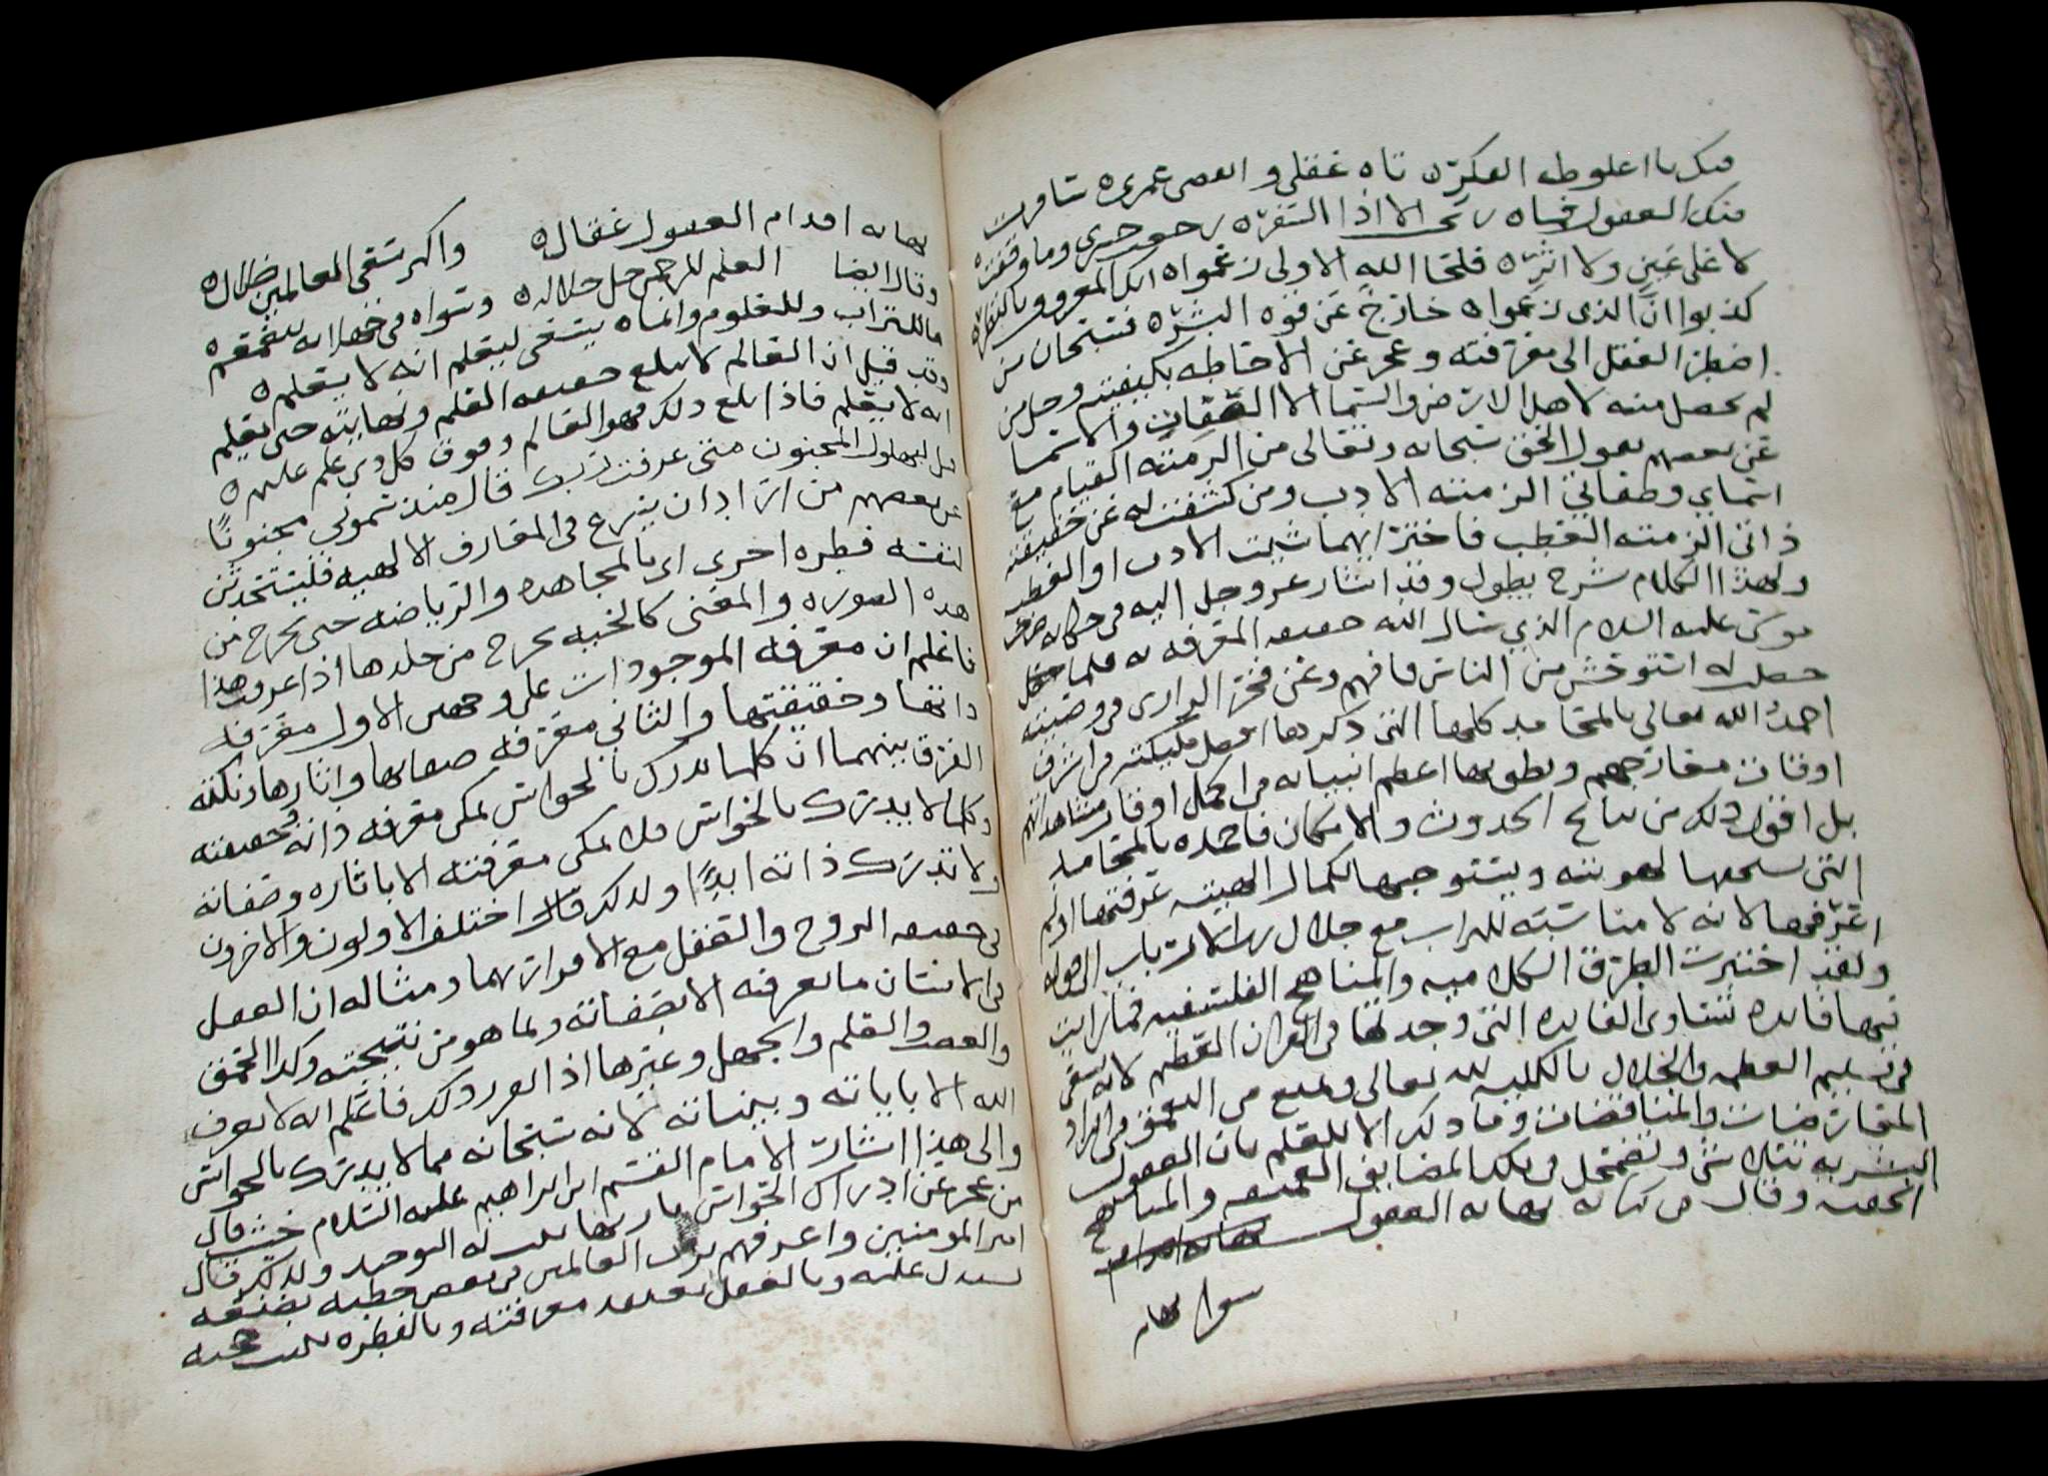 فيك يا اغلوطه الفكر ه تاه عقلي وانقضى عمري ه سافرت
فيك العقول فما ه ربحت الا اذا السفر ه رجعت حسرى وما وقفت ه
لا على عين ولا اثر ه فلحا الله الاولى زعموا ه انك المعروف بالنظر ه
كذبوا ان الذي زعموا ه خارج عن قوه البشر ه فسبحان من
اضطر العقل الى معرفته وعجز عن الاحاطه بكيفيته وجل من
لم يحصل منه لاهل الارض والسما الا الصفات والاسما
عن بعضهم يقول الحق سبحانه وتعالى من الزمته القيام مع
اسمائي وصفاتي الزمته الادب ومن كشفت له عن حقيقة
ذاتي الزمته العطب فاختر ايهما شيت الادب او العطب
ولهذا الكلام شرح يطول وقد اشار عز وجل اليه في حكايه
موسى عليه السلام الذي سال الله حقيقه المعرفه به فلما
حصلت له استوحش من الناس فافهم وعن فخر الرازي في وصيته
احمد الله تعالى بالمحامد كلها التي ذكرها افضل مليكته في اشرف
اوقات معارجهم ونطق بها اعظم انبيائه في اكمل اوقات مشاهداتهم
بل اقول ذلك من نتايج الحدوث والامكان فاحمده بالمحامد
التي يستحقها لهويته ويستوجبها لكمال الهيته عرفتها او لم
اعرفها لانه لا مناسبة للتراب مع جلال رب الارباب الى قوله
ولقد اختبرت الطرق الكلاميه والمناهج الفلسفيه فما رايت
فيها فايده تساوي الفايده التي وجدتها في القران العظيم لانه يسعى
في تسليم العظمه والجلال بالكليه لله تعالى ويمنع من التعمق في ايراد
المعارضات والمناقضات وما ذلك الا للعلم بان العقول
البشريه تتلاشى وتضمحل في تلك المضايق العميقه والمناهج
الخفيه وقال في كتابه نهايه العقول
نهايه اقدام العقول عقال ه واكثر سعي العالمين ضلال ه
وقال ايضا العلم للرحمن جل جلاله ه وسواه في جهلاته يتغمغم ه
ما للتراب وللعلوم وانما ه يسعى ليعلم انه لا يعلم ه
وقد قيل ان العالم لا يبلغ حقيقه العلم ونهايته حتى يعلم
انه لا يعلم فاذا بلغ ذلك فهو العالم وفوق كل ذي علم عليم ه
قيل لبهلول المجنون متى عرفت ربك قال منذ سموني مجنونا
عن بعضهم من اراد ان يشرع في المعارف الالهيه فليستحدث
لنفسه فطره اخرى اي بالمجاهده والرياضه حتى يخرج من
هذه الصوره والمعنى كالحيه يخرج من جلدها اذا عرفت هذا
فاعلم ان معرفه الموجودات على وجهين الاول معرفه
ذاتها وحقيقتها والثاني معرفه صفاتها واثارها ونكته
الفرق بينهما ان كلما يدرك بالحواس يمكن معرفه ذاته وحقيقته
وكلما لا يدرك بالحواس فلا يمكن معرفته الا باثاره وصفاته
ولا تدرك ذاته ابدا ولذلك اختلف الاولون والاخرون
في حقيقه الروح والعقل مع الاقرار بهما ومثاله ان العقل
في الانسان ما يعرفه الا بصفاته وبما هو من نتيجته وكذا الحمق
والعلم والجهل وغيرها اذا تقرر ذلك فاعلم انه لا يعرف
الله الا باياته وبيناته لانه سبحانه مما لا يدرك بالحواس
والى هذا اشار الامام القسم ابن ابراهيم عليه السلام حيث قال
من عجز عن ادراك الحواس له التوحيد ولذلك قال
امير المومنين واعرفهم برب العالمين في بعض خطبه بصنعه
يستدل عليه وبالعقل تعتقد معرفته وبالفطره تثبت حجته